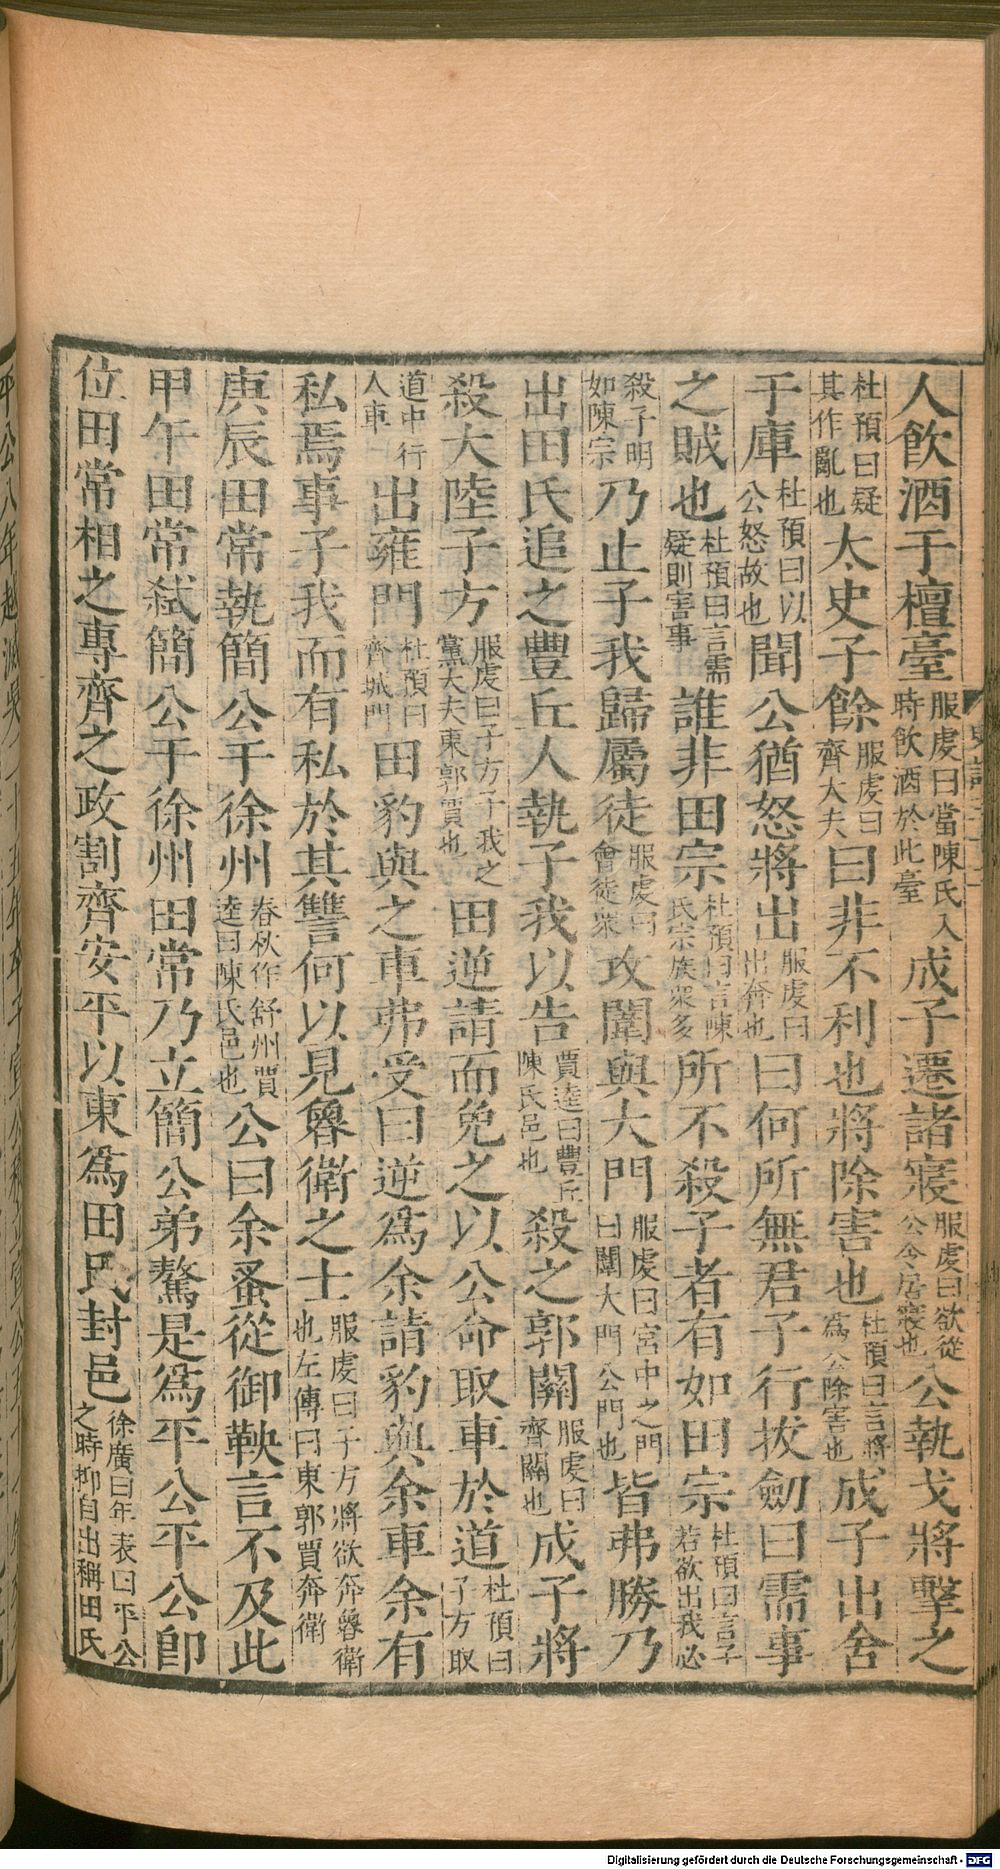 人飲酒于檀臺服虔曰當陳氏入時飲酒於此臺成子遷諸寢服虔曰欲從公令居寢也公執戈將擊之
杜預曰疑其作亂也太史子餘服虔曰齊大夫曰非不利也將除害也杜預曰言將為公除害也成子出舍
于庫杜預曰以公怒故也聞公猶怒將出服虔曰出奔也曰何所無君子行拔劒曰需事
之賊也杜預曰言需疑則害事誰非田宗杜預曰言陳氏宗族衆多所不殺子者有如田宗杜預曰言子若欲出我必
殺子明如陳宗乃止子我歸屬徒服虔曰會徒衆攻闈與大門服虔曰宮中之門曰闈大門公門也皆弗勝乃
出田氏追之豐丘人執子我以告賈逵曰豐丘陳氏邑也殺之郭關服虔曰齊關也成子將
殺大陸子方服虔曰子方子我之黨大夫東郭賈也田逆請而免之以公命取車於道杜預曰子方取
道中行人車出雍門杜預曰齊城門田豹與之車弗受曰逆爲余請豹與余車余有
私焉事子我而有私於其讐何以見魯衛之士服虔曰子方將欲奔魯衛也左傳曰東郭賈奔衛
庚辰田常執簡公于徐州春秋作舒州賈逵曰陳氏邑也公曰余蚤從御鞅言不及此
甲午田常弑簡公于徐州田常乃立簡公弟驁是爲平公平公卽
位田常相之專齊之政割齊安平以東爲田氏封邑徐廣曰年表曰平公之時抑自出稱田氏
Digitalisierung gefördert durch die Deutsche Forschungsgemeinschaft - DFG